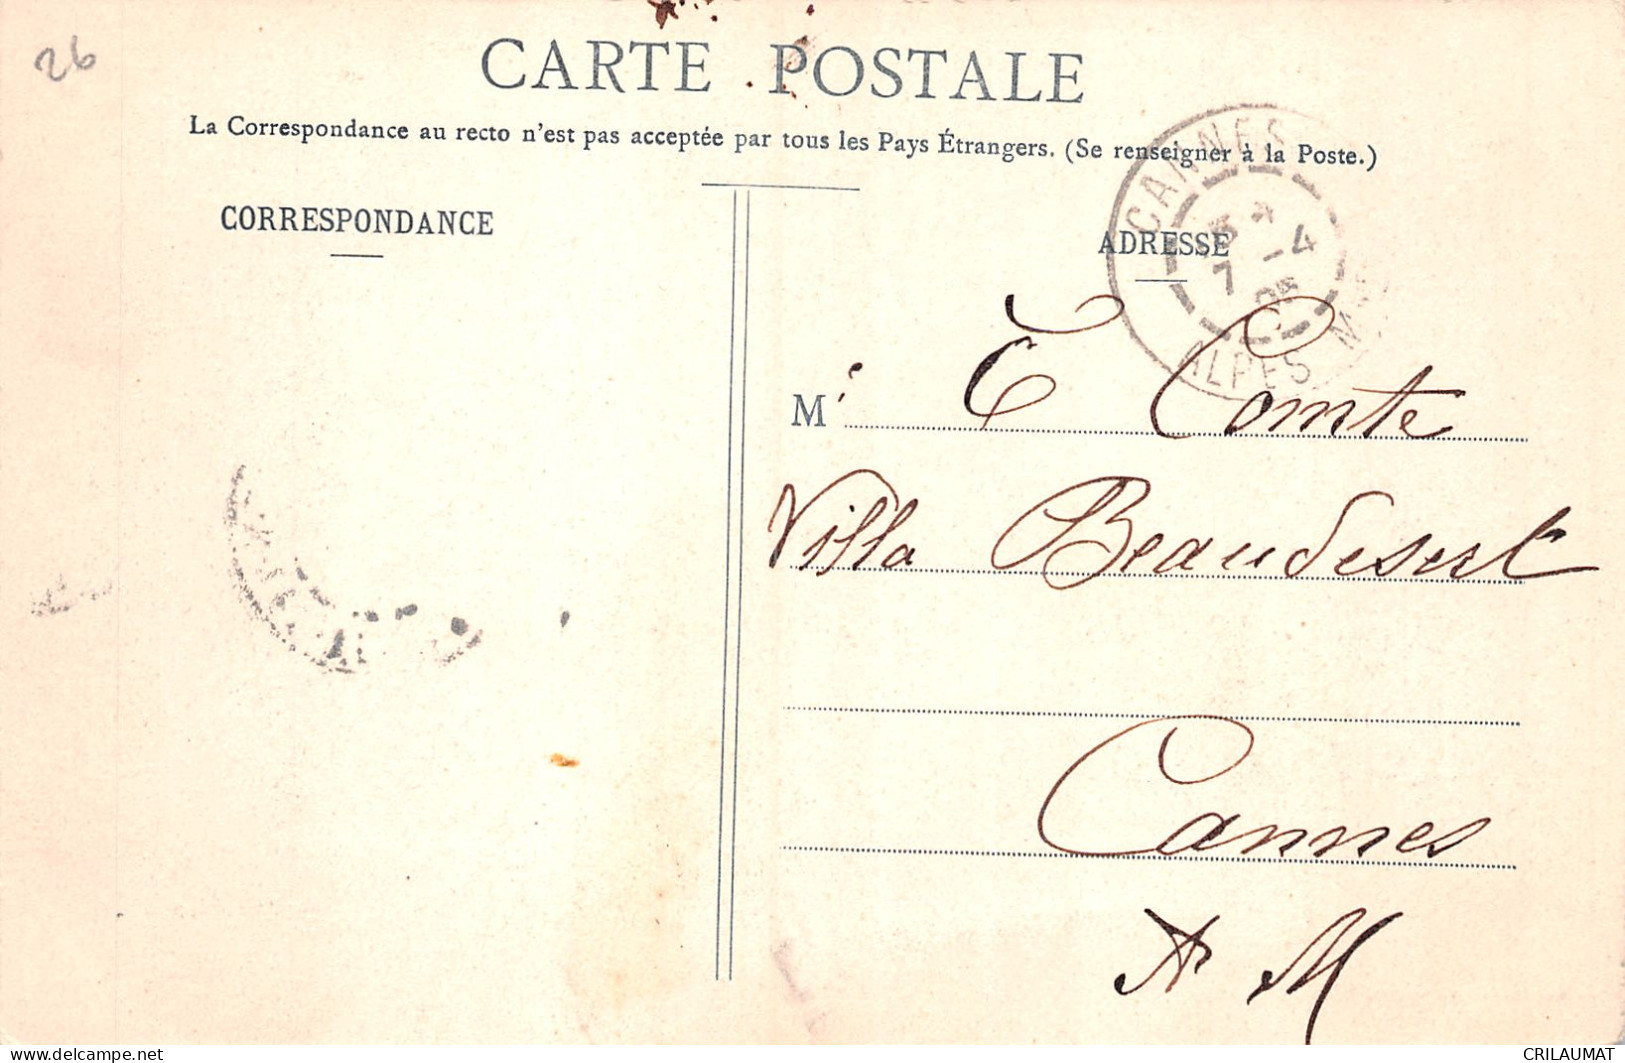 26
CARTE POSTALE
La Correspondance au recto n'est pas acceptée par tous les Pays Étrangers. (Se renseigner à la Poste.)
CORRESPONDANCE
ADRESSE
CANNES
7 -4
05
ALPES Mmes
M
E Comte
Villa Beaudesert
Cannes
A M
www.delcampe.net
CRILAUMAT